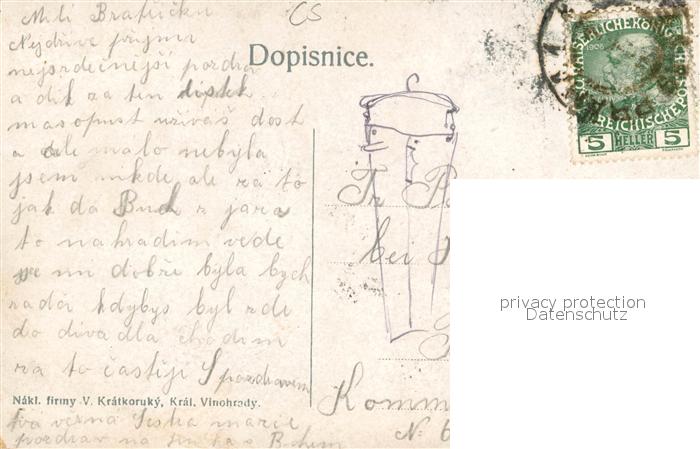 Milí Bratříčku
CS
Nejdříve přijmi
nejsrdečnější pozdra
a dík za ten lístek
masopust užíváš dost
a ale málo nebyla
jsem nikde ale za to
jak dá Bůh z jara
to nahradím vede
se mi dobře byla bych
ráda kdybys byl zde
do divadla chodím
za to častěji S pozdravem
Tvá věrná Sestra Marie
pozdrav na
Dopisnice.
bei
Komm
N. 6
Nákl. firmy V. Krátkoruký, Král. Vinohrady.
1908
5 HELLER 5
privacy protection
Datenschutz